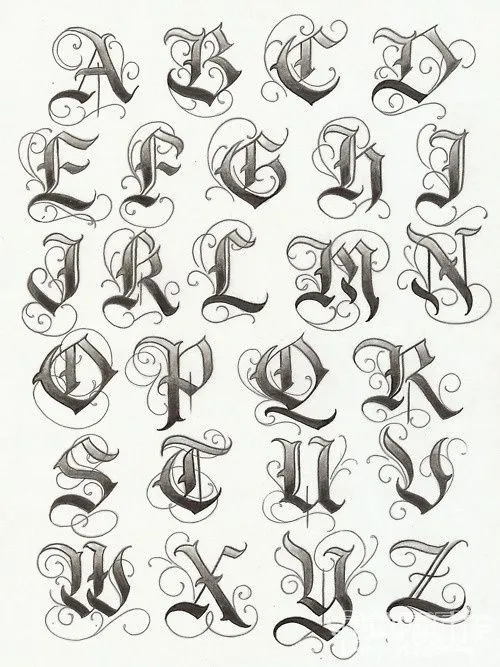 A B C D
E F G H I
J K L M N
O P Q R
S T U V
W X Y Z